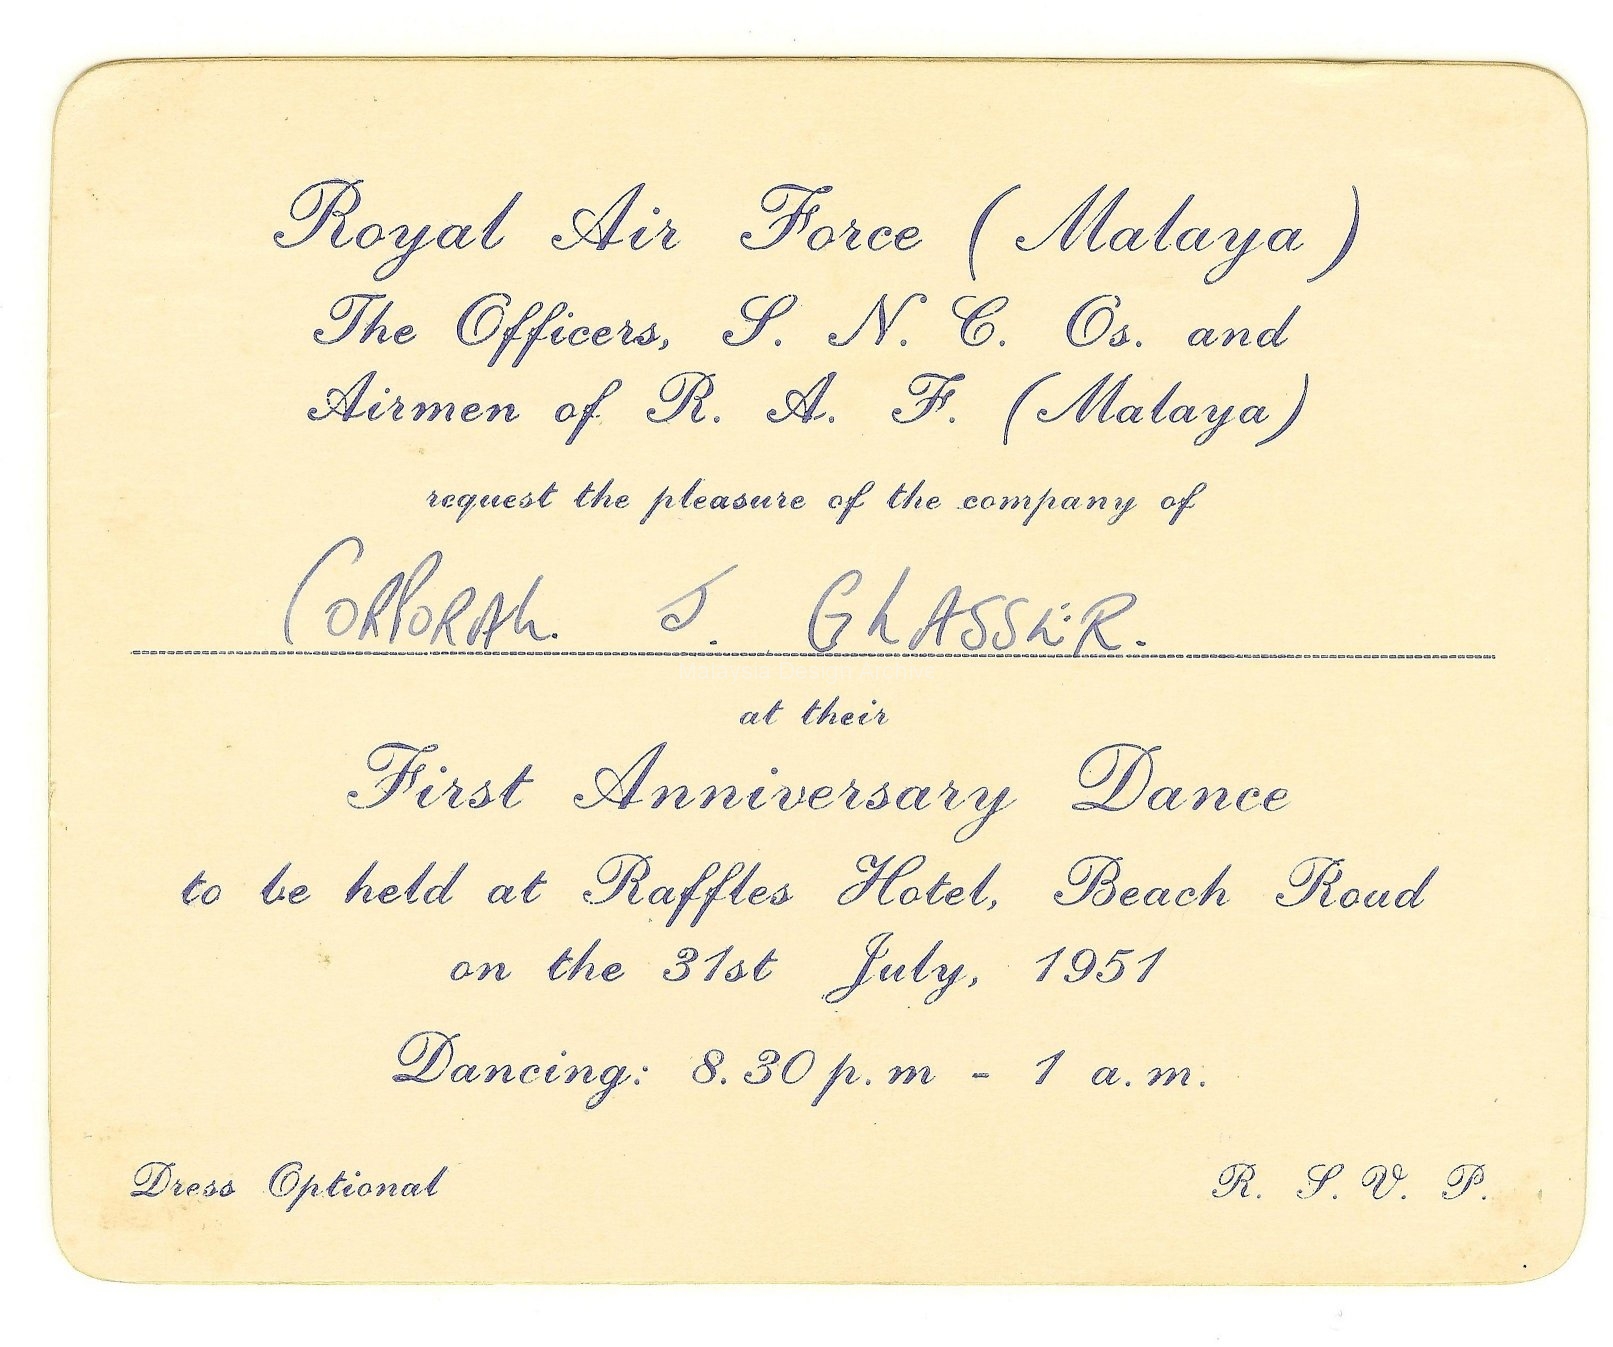 Royal Air Force (Malaya)
The Officers, S. N. C. Os. and
Airmen of R. A. F. (Malaya)
request the pleasure of the company of
CORPORAL. J. GLASSER.
at their
First Anniversary Dance
to be held at Raffles Hotel, Beach Roud
on the 31st July, 1951
Dancing: 8.30 p.m - 1 a.m.
Dress Optional
R. S. V. P.